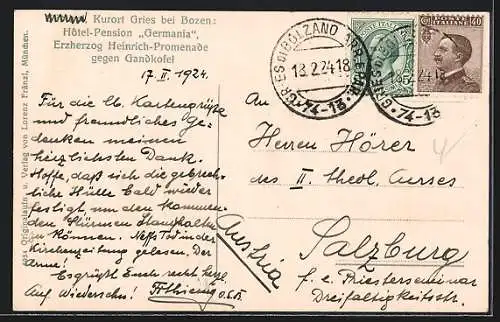 Kurort Gries bei Bozen:
Hôtel-Pension „Germania",
Erzherzog Heinrich-Promenade
gegen Gandkofel
17. II. 1924.
Für die lb. Kartengrüße
und freundliches Ge-
denken meinen
herzlichsten Dank.
Hoffe, daß sich die gebrech-
liche Hülle bald wieder
festigt um den kommen-
den Stürmen Standhalten
zu können. Neffs Tod in der
Kirchenzeitung gelesen. Der
Arme! Es grüßt Euch recht herzl.
Auf Wiedersehn!
6051 Originalaufn. u. Verlag von Lorenz Fränzl, München.
GRIES DI BOLZANO
18.2.24 18
74-13
POSTE ITALIANE
40
24.18
74-13
An
Herren Hörer
des II. theol. Curses
Salzburg
f. e. Priesterseminar
Dreifaltigkeitsstr.
Austria